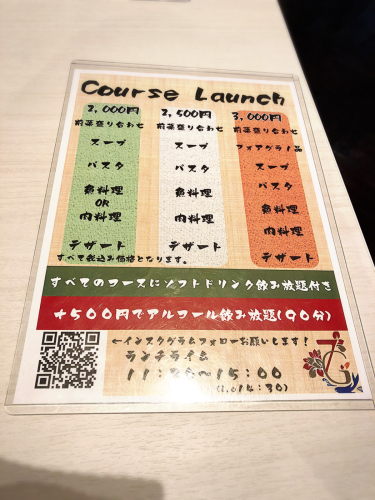 Course Launch
2,000円
前菜盛り合わせ
スープ
パスタ
魚料理
OR
肉料理
デザート
2,500円
前菜盛り合わせ
スープ
パスタ
魚料理
肉料理
デザート
3,000円
前菜盛り合わせ
フォアグラ1品
スープ
パスタ
魚料理
肉料理
デザート
すべて税込み価格となります。
すべてのコースにソフトドリンク飲み放題付き
+500円でアルコール飲み放題(90分)
←インスタグラムフォローお願いします!
ランチタイム
~15:00